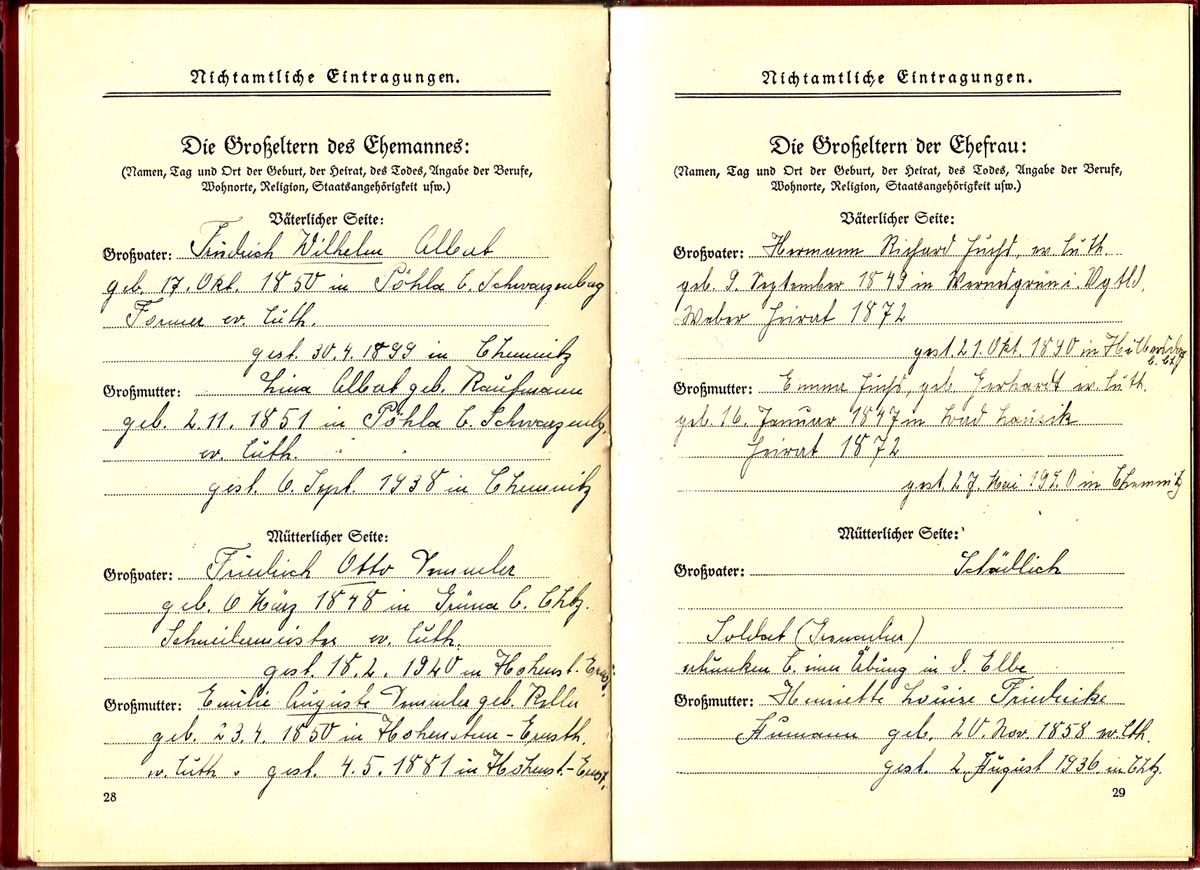 Nichtamtliche Eintragungen.
Die Großeltern des Ehemannes:
(Namen, Tag und Ort der Geburt, der Heirat, des Todes, Angabe der Berufe,
Wohnorte, Religion, Staatsangehörigkeit usw.)
Väterlicher Seite:
Großvater: Friedrich Wilhelm Albert
geb. 17. Okt. 1850 in Pöhla b. Schwarzenberg
Former ev. luth.
gest. 30.4.1899 in Chemnitz
Großmutter: Lina Albert geb. Kaufmann
geb. 2.11.1851 in Pöhla b. Schwarzenbg.
ev. luth.
gest. 6. Sept. 1938 in Chemnitz
Mütterlicher Seite:
Großvater: Friedrich Otto
geb. 6 März 1848 in Grüna b. Chtz.
Schneidermeister ev. luth.
gest. 18.2.1940 in Hohenst.-Ernst.
Großmutter: Emilie Auguste geb.
geb. 23.4.1850 in Hohenstein-Ernstth.
ev. luth. gest. 4.5.1881 in Hohenst.-Ernst.
28
Nichtamtliche Eintragungen.
Die Großeltern der Ehefrau:
(Namen, Tag und Ort der Geburt, der Heirat, des Todes, Angabe der Berufe,
Wohnorte, Religion, Staatsangehörigkeit usw.)
Väterlicher Seite:
Großvater: Hermann Richard Fuchs, ev. luth.
geb. 9. September 1849 in Wernesgrün i. Vgtld.
Weber Heirat 1872
gest. 21. Okt. 1890 in Hilbersdorf
b. Ch.
Großmutter: Emma Fuchs, geb. Gerhardt ev. luth.
geb. 16. Januar 1847 in Bad Lausik
Heirat 1872
gest. 27. Mai 1920 in Chemnitz
Mütterlicher Seite:
Großvater: Schädlich
Soldat (Grenadier)
ertrunken b. einer Übung in d. Elbe
Großmutter: Henriette Louise Friederike
Aumann geb. 20. Nov. 1858 ev. lth.
gest. 2. August 1936 in Chtz.
29